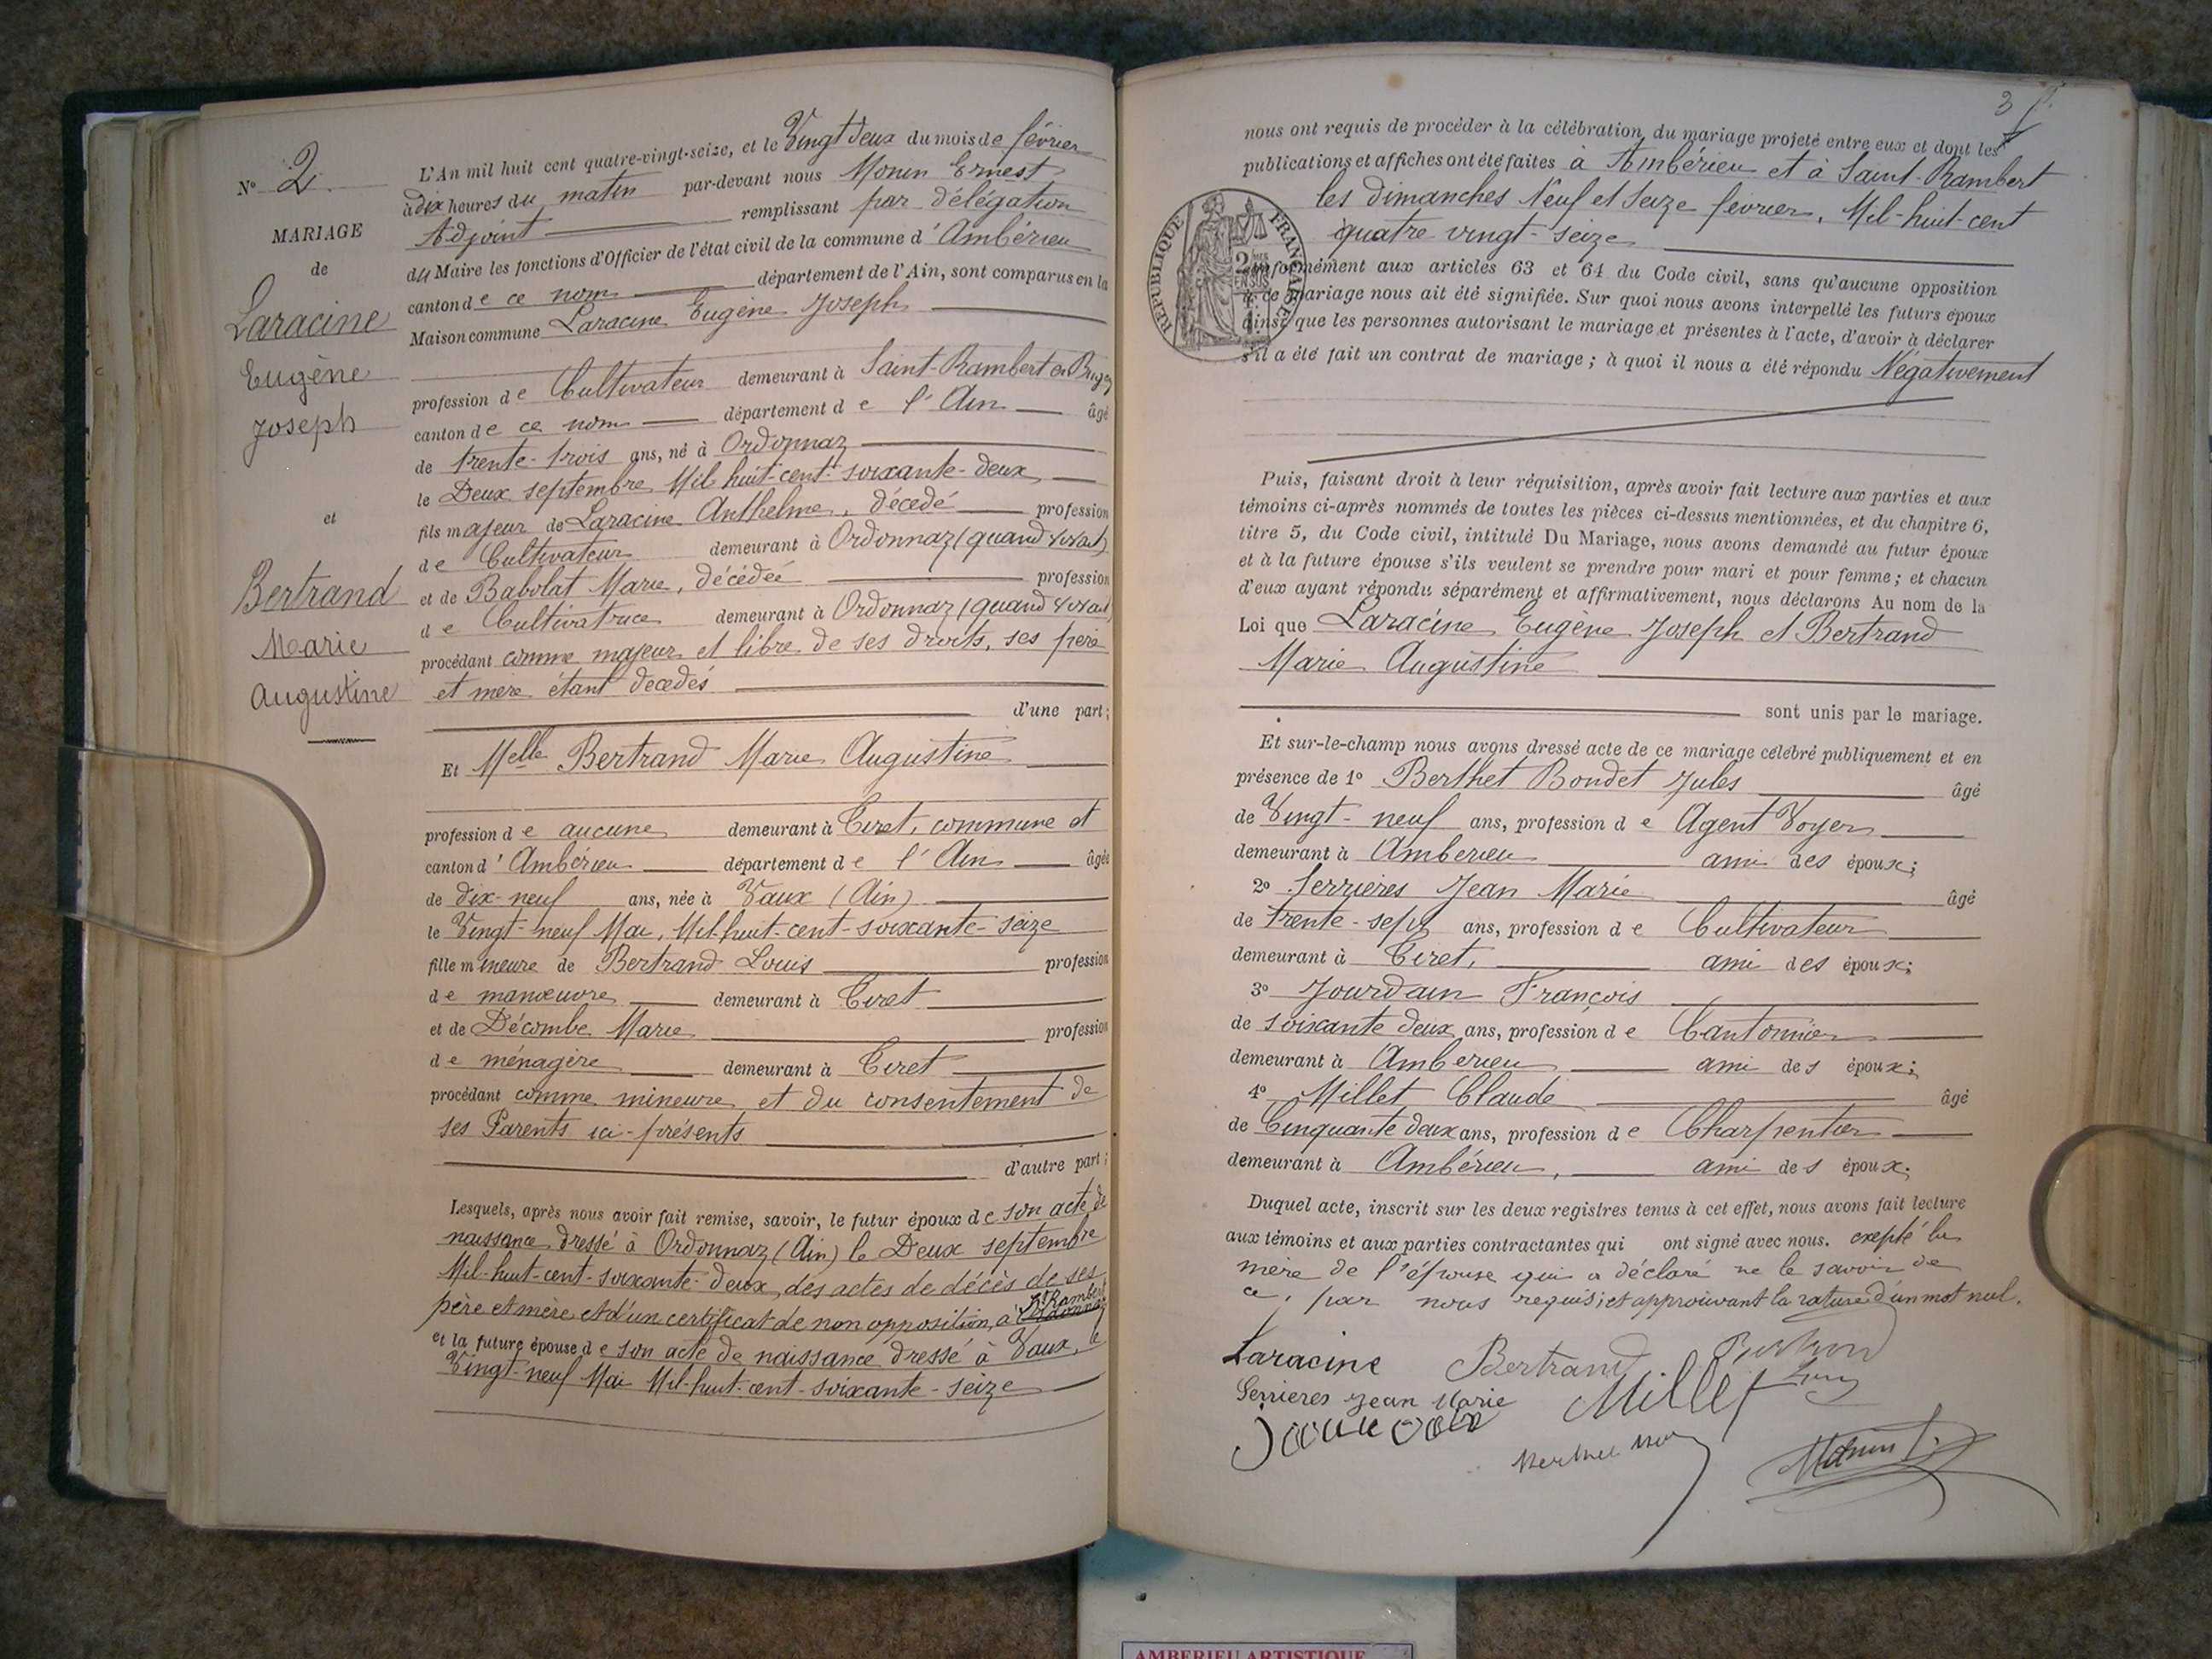 N° 2
MARIAGE
de
Laracine
Eugène
Joseph
et
Bertrand
Marie
Augustine
L'An mil huit cent quatre-vingt-seize, et le Vingt deux du mois de février
à dix heures du matin par-devant nous Monin Ernest
Adjoint remplissant par délégation
du Maire les fonctions d'Officier de l'état civil de la commune d'Ambérieu
canton de ce nom département de l'Ain, sont comparus en la
Maison commune Laracine Eugène Joseph
profession de Cultivateur demeurant à Saint-Rambert en Bugey
canton de ce nom département de l'Ain âgé
de trente-trois ans, né à Ordonnaz
le Deux septembre Mil huit-cent-soixante-deux
fils majeur de Laracine Anthelme, décédé profession
de Cultivateur demeurant à Ordonnaz (quand vivait)
et de Babolat Marie, décédée profession
de Cultivatrice demeurant à Ordonnaz (quand vivait)
procédant comme majeur et libre de ses droits, ses père
et mère étant décédés
d'une part;
Et Melle Bertrand Marie Augustine
profession de aucune demeurant à Tiret, commune et
canton d'Ambérieu département de l'Ain âgée
de dix-neuf ans, née à Vaux (Ain)
le Vingt-neuf Mai, Mil-huit-cent-soixante-seize
fille mineure de Bertrand Louis profession
de manœuvre demeurant à Tiret
et de Décombe Marie profession
de ménagère demeurant à Tiret
procédant comme mineure et du consentement de
ses Parents ici-présents
d'autre part;
Lesquels, après nous avoir fait remise, savoir, le futur époux de son acte de
naissance dressé à Ordonnaz (Ain) le Deux septembre
Mil-huit-cent-soixante-deux, des actes de décès de ses
père et mère et d'un certificat de non opposition, à St Rambert
et la future épouse de son acte de naissance dressé à Vaux, le
Vingt-neuf Mai Mil-huit-cent-soixante-seize
3
nous ont requis de procéder à la célébration du mariage projeté entre eux et dont les
publications et affiches ont été faites à Ambérieu et à Saint-Rambert
les dimanches Neuf et Seize février, Mil-huit-cent
quatre vingt-seize
RÉPUBLIQUE FRANÇAISE
conformément aux articles 63 et 64 du Code civil, sans qu'aucune opposition
à ce mariage nous ait été signifiée. Sur quoi nous avons interpellé les futurs époux
ainsi que les personnes autorisant le mariage et présentes à l'acte, d'avoir à déclarer
s'il a été fait un contrat de mariage; à quoi il nous a été répondu Négativement
Puis, faisant droit à leur réquisition, après avoir fait lecture aux parties et aux
témoins ci-après nommés de toutes les pièces ci-dessus mentionnées, et du chapitre 6,
titre 5, du Code civil, intitulé Du Mariage, nous avons demandé au futur époux
et à la future épouse s'ils veulent se prendre pour mari et pour femme; et chacun
d'eux ayant répondu séparément et affirmativement, nous déclarons Au nom de la
Loi que Laracine Eugène Joseph et Bertrand
Marie Augustine
sont unis par le mariage.
Et sur-le-champ nous avons dressé acte de ce mariage célébré publiquement et en
présence de 1° Berthet Bondet Jules âgé
de Vingt-neuf ans, profession de Agent Voyer
demeurant à Amberieu ami des époux;
2° Serrières Jean Marie âgé
de trente-sept ans, profession de Cultivateur
demeurant à Tiret, ami des époux;
3° Jourdain François
de soixante deux ans, profession de Cantonnier
demeurant à Amberieu ami des époux;
4° Millet Claude âgé
de Cinquante deux ans, profession de Charpentier
demeurant à Ambérieu, ami des époux.
Duquel acte, inscrit sur les deux registres tenus à cet effet, nous avons fait lecture
aux témoins et aux parties contractantes qui ont signé avec nous. exepté la
mère de l'épouse qui a déclaré ne le savoir de
ce, par nous requis; et approuvant la rature d'un mot nul.
Laracine Bertrand
Serrieres Jean Marie Millet
AMBERIEU ARTISTIQUE